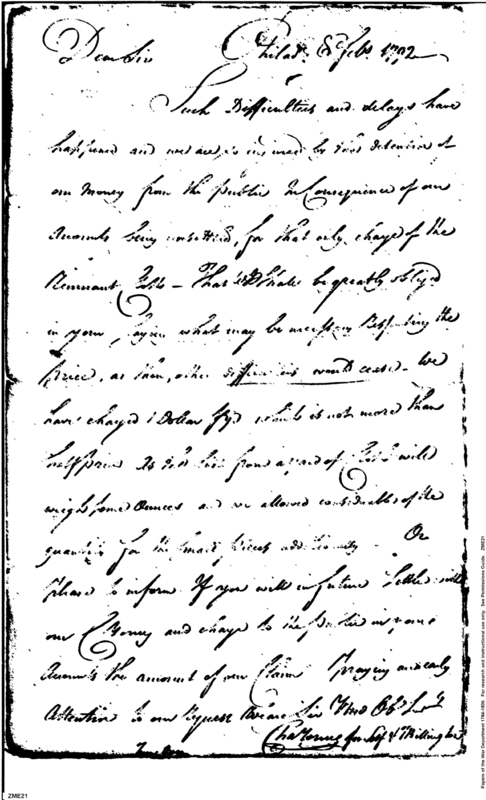 Dear Sir Philada. 8 Feby. 1792
Such Difficulties and delays have
happened and we are so injured by the detention of
our Money from the public In Consequence of our
Accounts being unsettled, for that only charge of the
Remnant - That We Shall be greatly obliged
in your saying what may be necessary Respecting the
price, as then, other difficulties would cease. We
have charged 1 Dollar which is not more than
half price As from a yard of will
weigh some Ounces and we allowed considerable of the
quantity for the small pieces additionally - Or
Please to inform If you will in future Settle with
our Money and charge to the public in your
Accounts the amount of our Claim Praying an early
Attention to our Request We are Sir Your Obt.
Cha Young for self &
ZME21
Papers of the War Department 1784-1800. For research and instructional use only. See Permissions Guide. ZME21